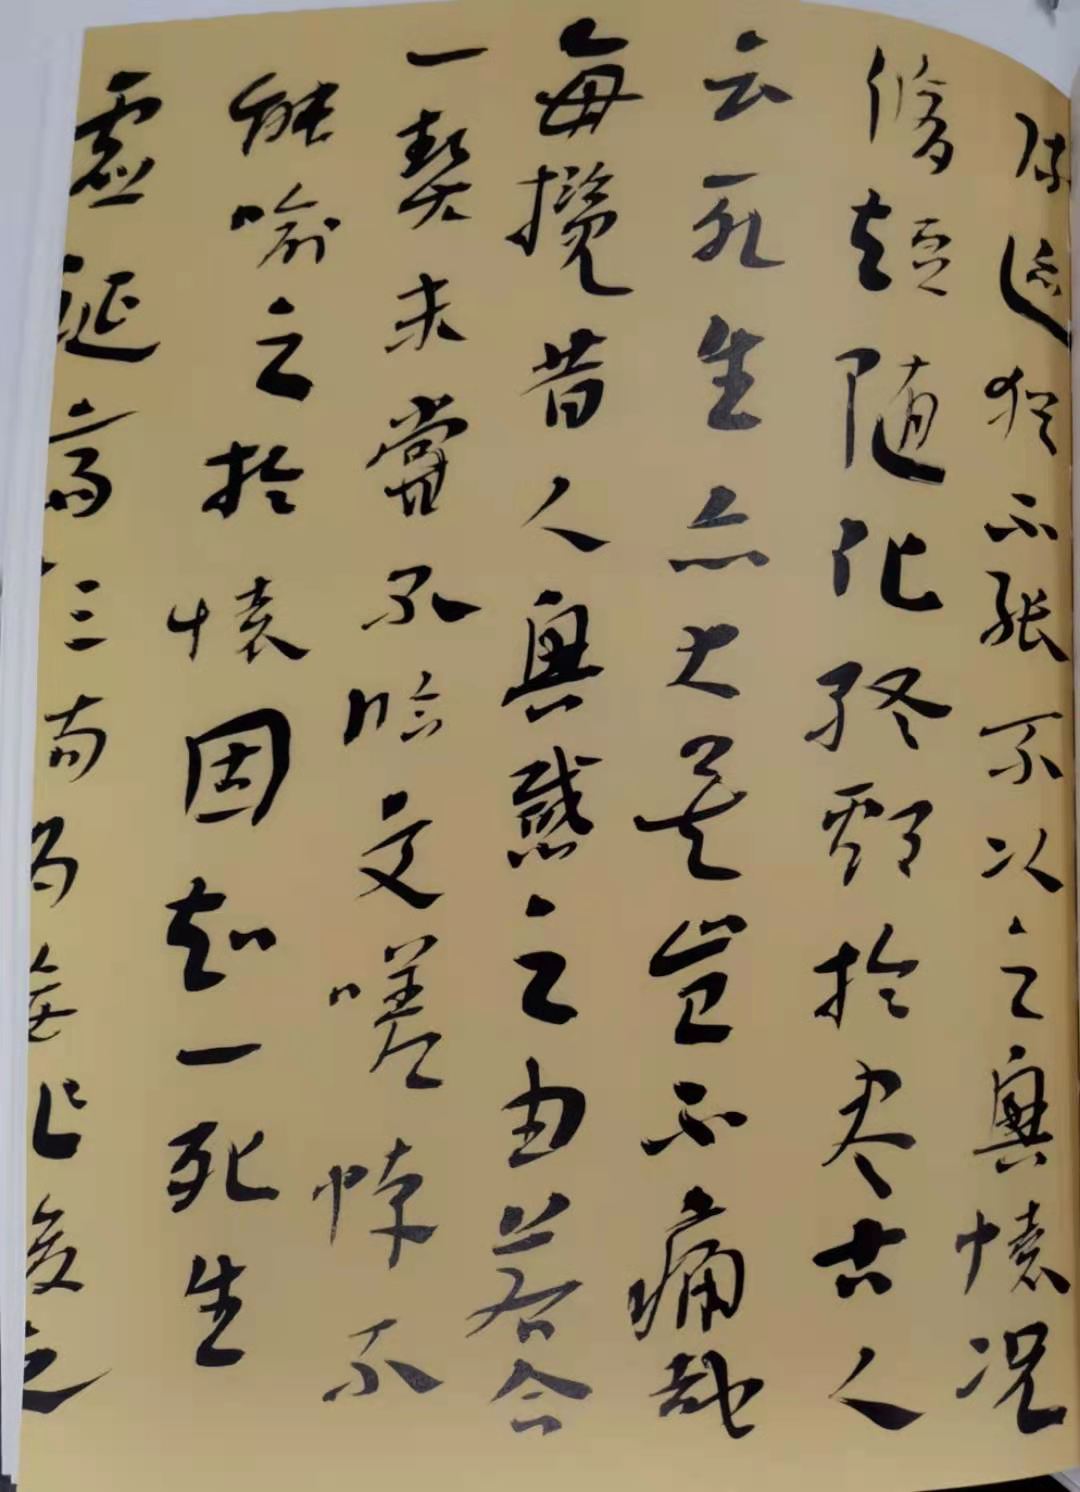 陳迹猶不能不以之興懷况
脩短随化終期於尽古人
云死生亦大矣豈不痛哉
每攬昔人興感之由若合
一契未嘗不臨文嗟悼不
能喻之於懷因知一死生
虛誕齊彭殤為妄作後之